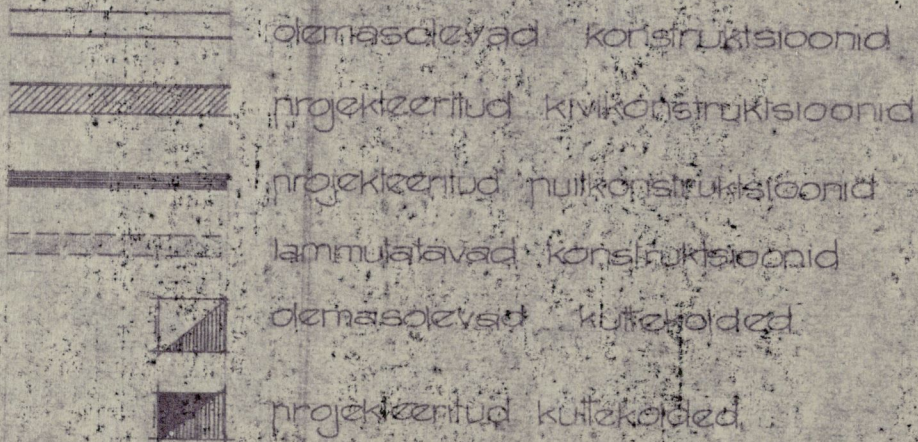 olemasolevad konstruktsioonid
projekteeritud kivikonstruktsioonid
projekteeritud puitkonstruktsioonid
lammutatavad konstruktsioonid
olemasolevad küttekolded
projekteeritud küttekolded